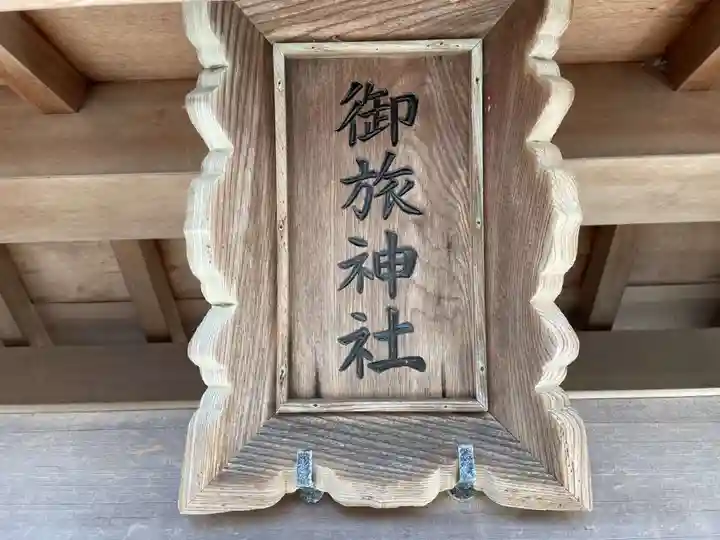 御旅神社